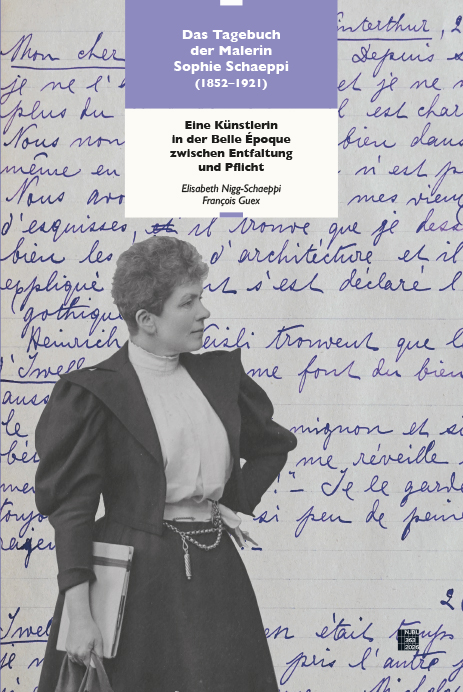 Das Tagebuch
der Malerin
Sophie Schaeppi
(1852–1921)
Eine Künstlerin
in der Belle Époque
zwischen Entfaltung
und Pflicht
Elisabeth Nigg-Schaeppi
François Guex
Winterthur, 2
Mon cher Depuis
je ne l'é et je ne
plus du est char
Nous non bien dans
même en n'est p
Nous avo mes vieux
d'esquisses, il trouve que je dess
bien les d'architecture et il
expliqué t s'est déclaré l
gothique
Heinrich trouvent que l
me font du bien
auss
le mignon et si
me réveille
Je le garde
toujo si peu de peine
2
en était temps
je pris l'autre
N.BL.
363
2026